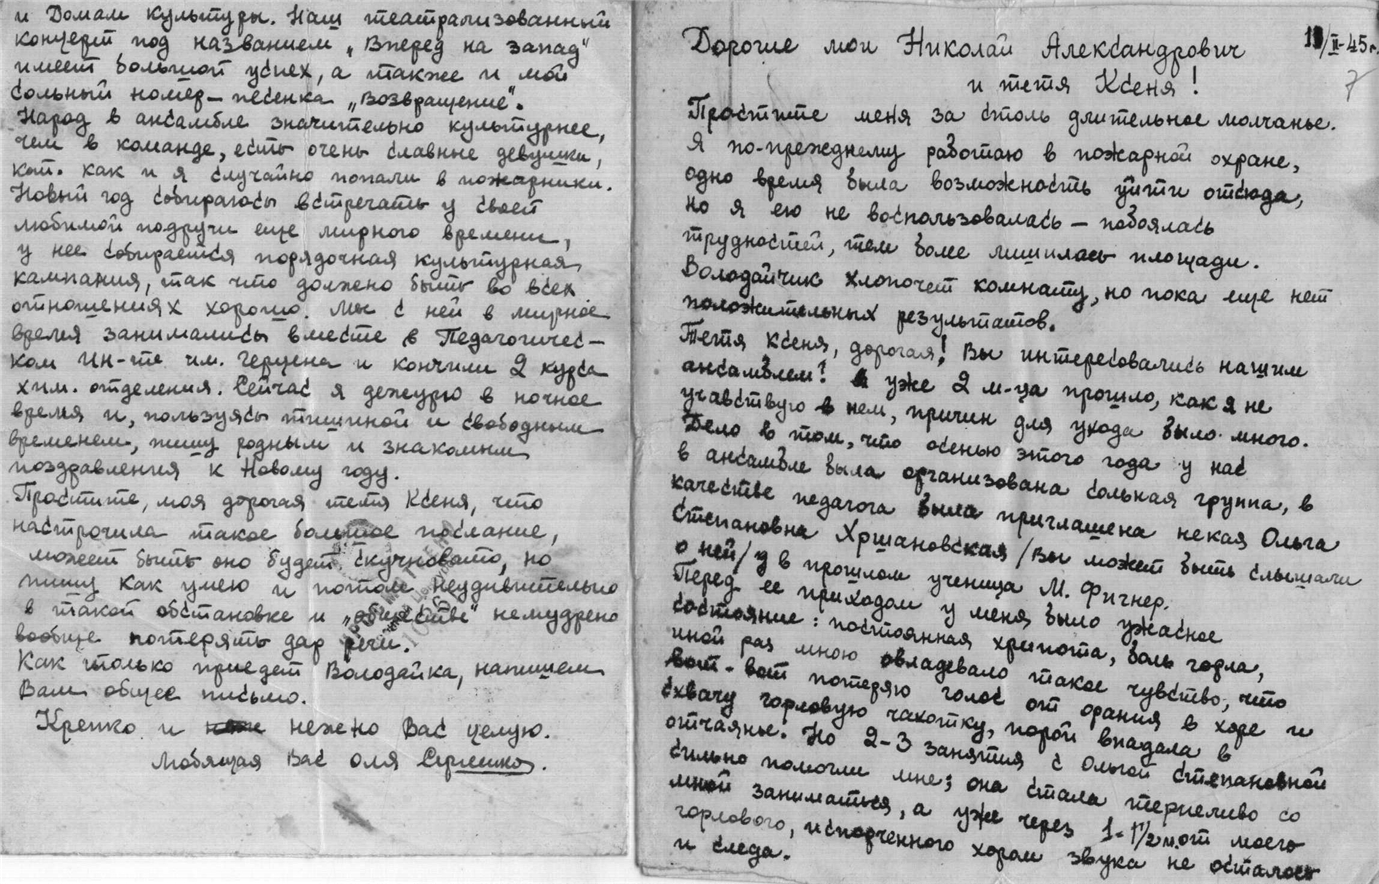 и Домам культуры. Наш театрализованный
концерт под названием „Вперед на запад"
имеет большой успех, а также и мой
сольный номер – песенка „Возвращение".
Народ в ансамбле значительно культурнее,
чем в команде, есть очень славные девушки,
кот. как и я случайно попали в пожарники.
Новый год собираюсь встречать у своей
любимой подруги еще мирного времени,
у нее собирается порядочная культурная
кампания, так что должно быть во всех
отношениях хорошо. Мы с ней в мирное
время занимались вместе в Педагогичес–
ком Ин-те им. Герцена и кончили 2 курса
хим. отделения. Сейчас я дежурю в ночное
время и, пользуясь тишиной и свободным
временем, пишу родным и знакомым
поздравления к Новому году.
Простите, моя дорогая тетя Ксеня, что
настрочила такое большое послание,
может быть оно будет скучновато, но
пишу как умею и потом неудивительно
в такой обстановке и „обществе" немудрено
вообще потерять дар речи.
Как только приедет Володайка, напишем
Вам общее письмо.
Крепко и нежно Вас целую.
Любящая Вас Оля
/II-45г.
7
Дорогие мои Николай Александрович
и тетя Ксеня!
Простите меня за столь длительное молчанье.
Я по-прежднему работаю в пожарной охране,
одно время была возможность уйти отсюда,
но я ею не воспользовалась – побоялась
трудностей, тем более лишилась площади.
Володайчик хлопочет комнату, но пока еще нет
положительных результатов.
Тетя Ксеня, дорогая! Вы интересовались нашим
ансамблем! уже 2 м-ца прошло, как я не
учавствую в нем, причин для ухода было много.
Дело в том, что осенью этого года у нас
в ансамбле была организована сольная группа, в
качестве педагога была приглашена некая Ольга
Степановна Хршановская /Вы может быть слышали
о ней/ в прошлом ученица М. Фигнер.
Перед ее приходом у меня было ужасное
состояние: постоянная хрипота, боль горла,
иной раз мною овладевало такое чувство, что
вот-вот потеряю голос от орания в хоре и
схвачу горловую чахотку, порой впадала в
отчаянье. Но 2-3 занятия с Ольгой Степановной
сильно помогли мне; она стала терпеливо со
мной заниматься, а уже через 1-1½ м. от моего
горлового, испорченного хором звука не осталось
и следа.